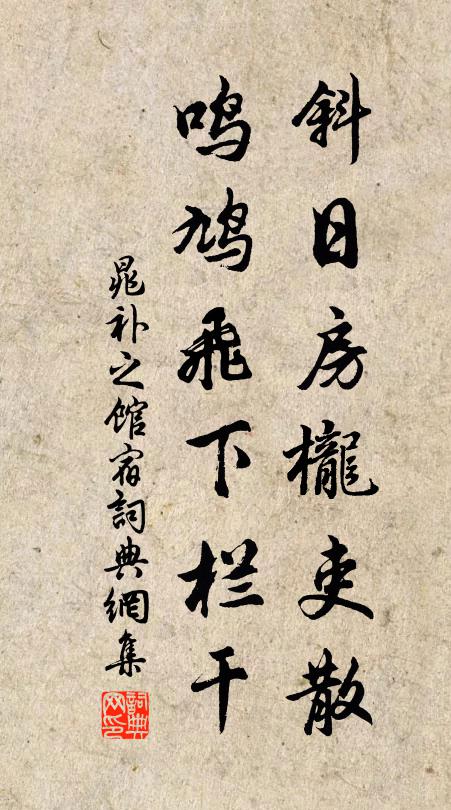 斜日房櫳吏散
鸣鸠飛下栏干
晁补之館宿詞典網集
詞典网印